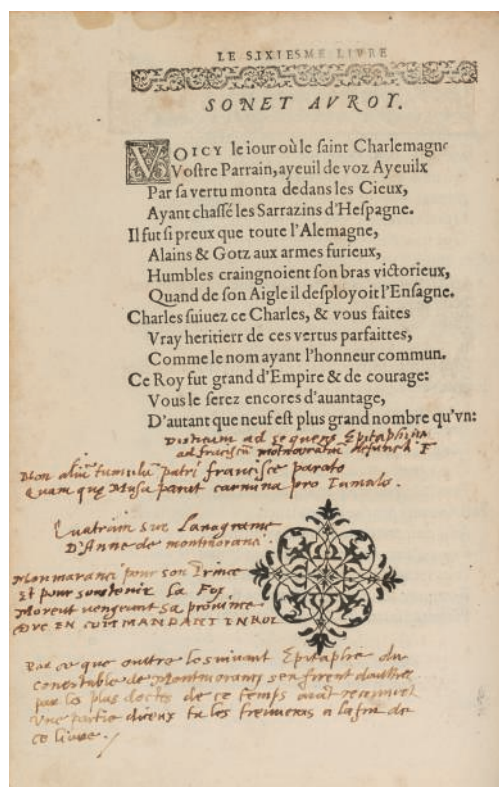 LE SIXIESME LIVRE
SONET AV ROY.
VOICY le iour où le saint Charlemagne
Vostre Parrain, ayeuil de voz Ayeuilx
Par sa vertu monta dedans les Cieux,
Ayant chassé les Sarrazins d'Hespagne.
Il fut si preux que toute l'Alemagne,
Alains & Gotz aux armes furieux,
Humbles craingnoient son bras victorieux,
Quand de son Aigle il desployoit l'Ensagne.
Charles suiuez ce Charles, & vous faites
Vray heritierr de ces vertus parfaittes,
Comme le nom ayant l'honneur commun.
Ce Roy fut grand d'Empire & de courage:
Vous le serez encores d'auantage,
D'autant que neuf est plus grand nombre qu'vn:
Disticum ad sequens Epitaphium
ad franciscū
Non aliū tumulū patri francisce parato
Quam quę Musa parit carmina pro Tumulo.
Quatrain sur Lanagrame
D'Anne de montmoranci.
Monmaranci pour son Prince
Et pour soustenir la Foy
Moreut vengeant sa province
Par ce que outre le suivant Epitaphe du
conestable de Montmorancy sen firent daultres
par les plus doctes de ce temps
Une partie diceux tu les treuveras a la fin de
ce livre.